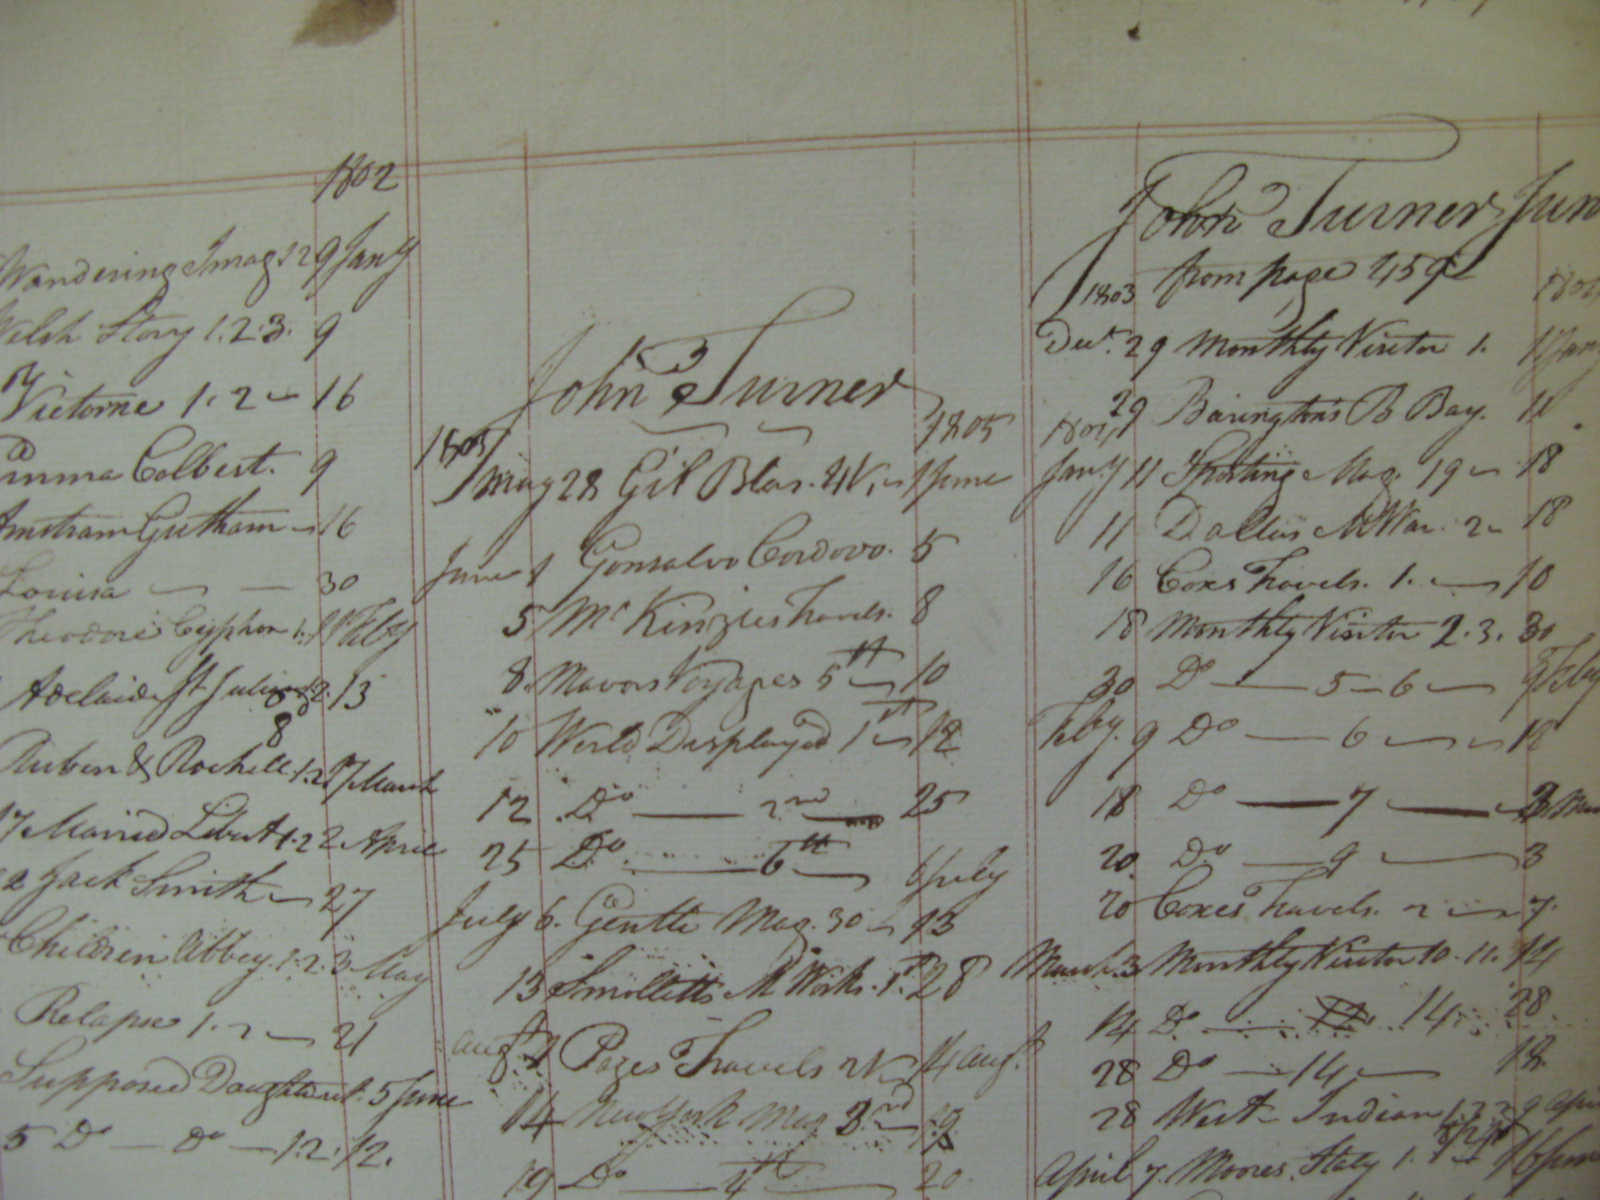 1802
Wandering Imag 1 2 9 Jany
Welsh Story 1.2.3. 9
Victorine 1.2 16
Emma Colbert. 9
16
Louisa 30
Theodore Cyphon 1.
Adelaide St Julian 13
8
Ruben & Rachell 1.2 March
Married Libert 1.2 2 April
Jack Smith 27
Children Abbey 1.2.3 May
Relapse 1.2 21
Supposed Daughter 5 June
5 Do Do 1.2. 12.
John Turner
1805 1805
May 28 Gil Blas. 4V. 1 June
June 1 Gonsalvo Cordovo. 5
5 McKinzies Travels. 8
8. Mavors Voyages 5th 10
10 World Displayed 1st 12
12 Do 2nd 25
25 Do 6th 6 July
July 6. Gentle Mag. 30 13
13 Smolletts M Works. 1st 28
Augt Pages Travels 2V 14 Augt
14 New York Mag 3nd 19
19 Do 4th 20.
John Turner Jun
from page 459
1803
Decr. 29 Monthly Visitor 1.
29 Barington's B Bay. 11
Jany 11 Sporting Mag. 19 18
11 Dallas M War. 2 18
16 Coxes Travels. 1. 10
18 Monthly Visitor 2.3. 30
30 Do 5-6 9 Feby
Feby. 9 Do 6 18
18 Do 7
20 Do 9 3
20 Coxes Travels. 2 7.
March 3 Monthly Visitor 10.11. 14
14 Do 14 28
28 Do 14 18
28 West Indian 9 Apri
April 7. Moores Italy 1.